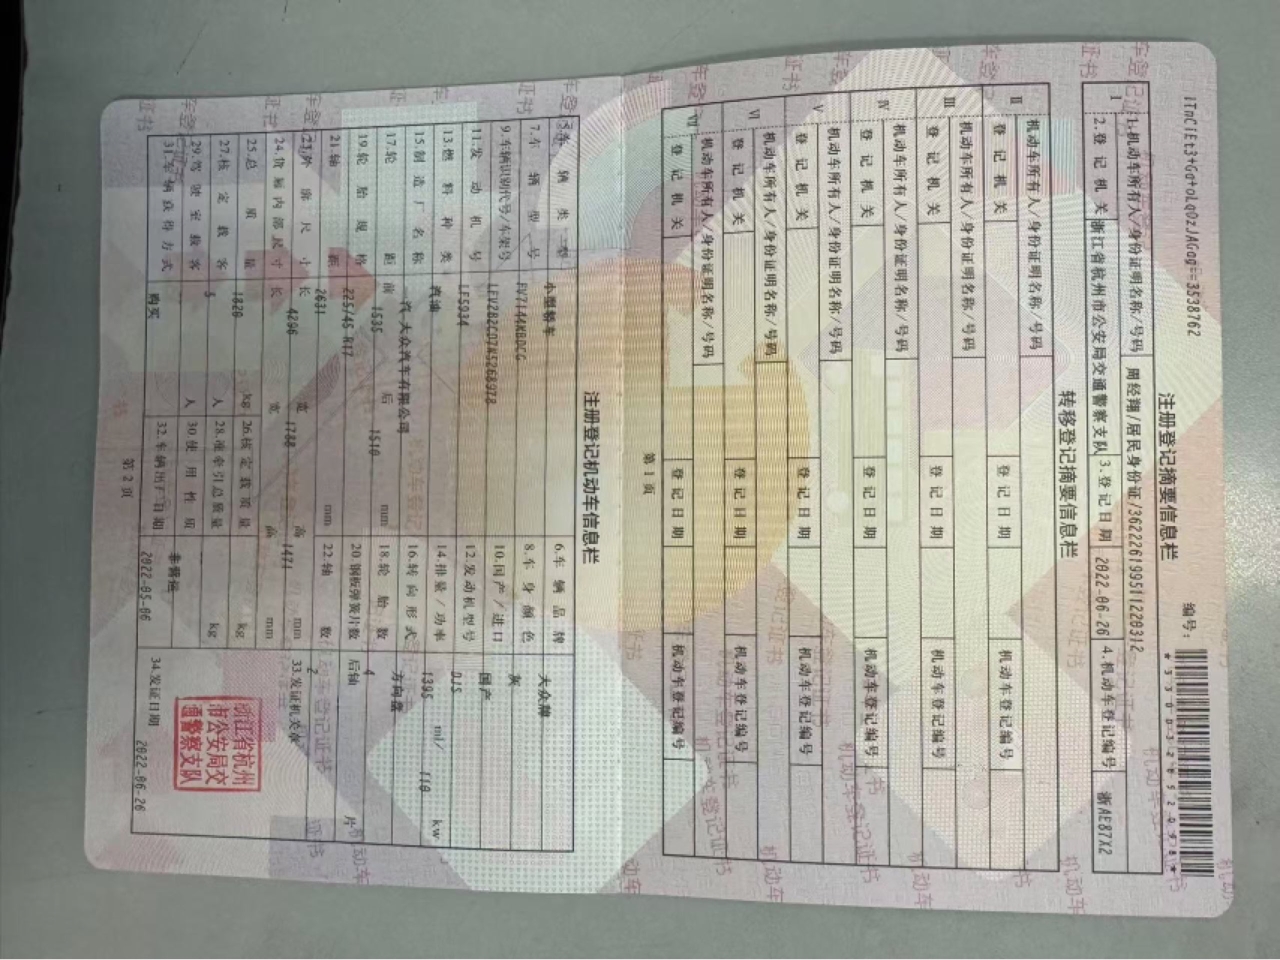 iTnCiEt3+Ga+oLq0zJAGag==3538762
编号:
注册登记摘要信息栏
I 1.机动车所有人/身份证明名称/号码 周经翔/居民身份证/362226199511220312
2.登记机关 浙江省杭州市公安局交通警察支队 3.登记日期 2022-06-26 4.机动车登记编号 浙AE87X2
转移登记摘要信息栏
II 机动车所有人/身份证明名称/号码
登记机关 登记日期 机动车登记编号
III 机动车所有人/身份证明名称/号码
登记机关 登记日期 机动车登记编号
IV 机动车所有人/身份证明名称/号码
登记机关 登记日期 机动车登记编号
V 机动车所有人/身份证明名称/号码
登记机关 登记日期 机动车登记编号
VI 机动车所有人/身份证明名称/号码
登记机关 登记日期 机动车登记编号
VII 机动车所有人/身份证明名称/号码
登记机关 登记日期 机动车登记编号
第 1 页
注册登记机动车信息栏
5.车辆类型 小型轿车 6.车辆品牌 大众牌
7.车辆型号 8.车身颜色 灰
9.车辆识别代号/车架号 10.国产/进口 国产
11.发动机号 12.发动机型号 DJS
13.燃料种类 汽油 14.排量/功率 1395 ml/ 110 kw
15.制造厂名称 一汽-大众汽车有限公司 16.转向形式 方向盘
17.轮距 前 1535 后 1510 mm 18.轮胎数 4
19.轮胎规格 225/45 R17 20.钢板弹簧片数 后轴 片
21.轴距 2631 mm 22.轴数 2
23.外廓尺寸 长 4296 宽 1788 高 1471 mm 33.发证机关章
24.货厢内部尺寸 长 宽 高 mm
25.总质量 1820 kg 26.核定载质量 kg
27.核定载客 5 人 28.准牵引总质量 kg
29.驾驶室载客 人 30.使用性质 非营运
31.车辆获得方式 购买 32.车辆出厂日期 2022-05-06 34.发证日期 2022-06-26
浙江省杭州
市公安局交
通警察支队
第 2 页